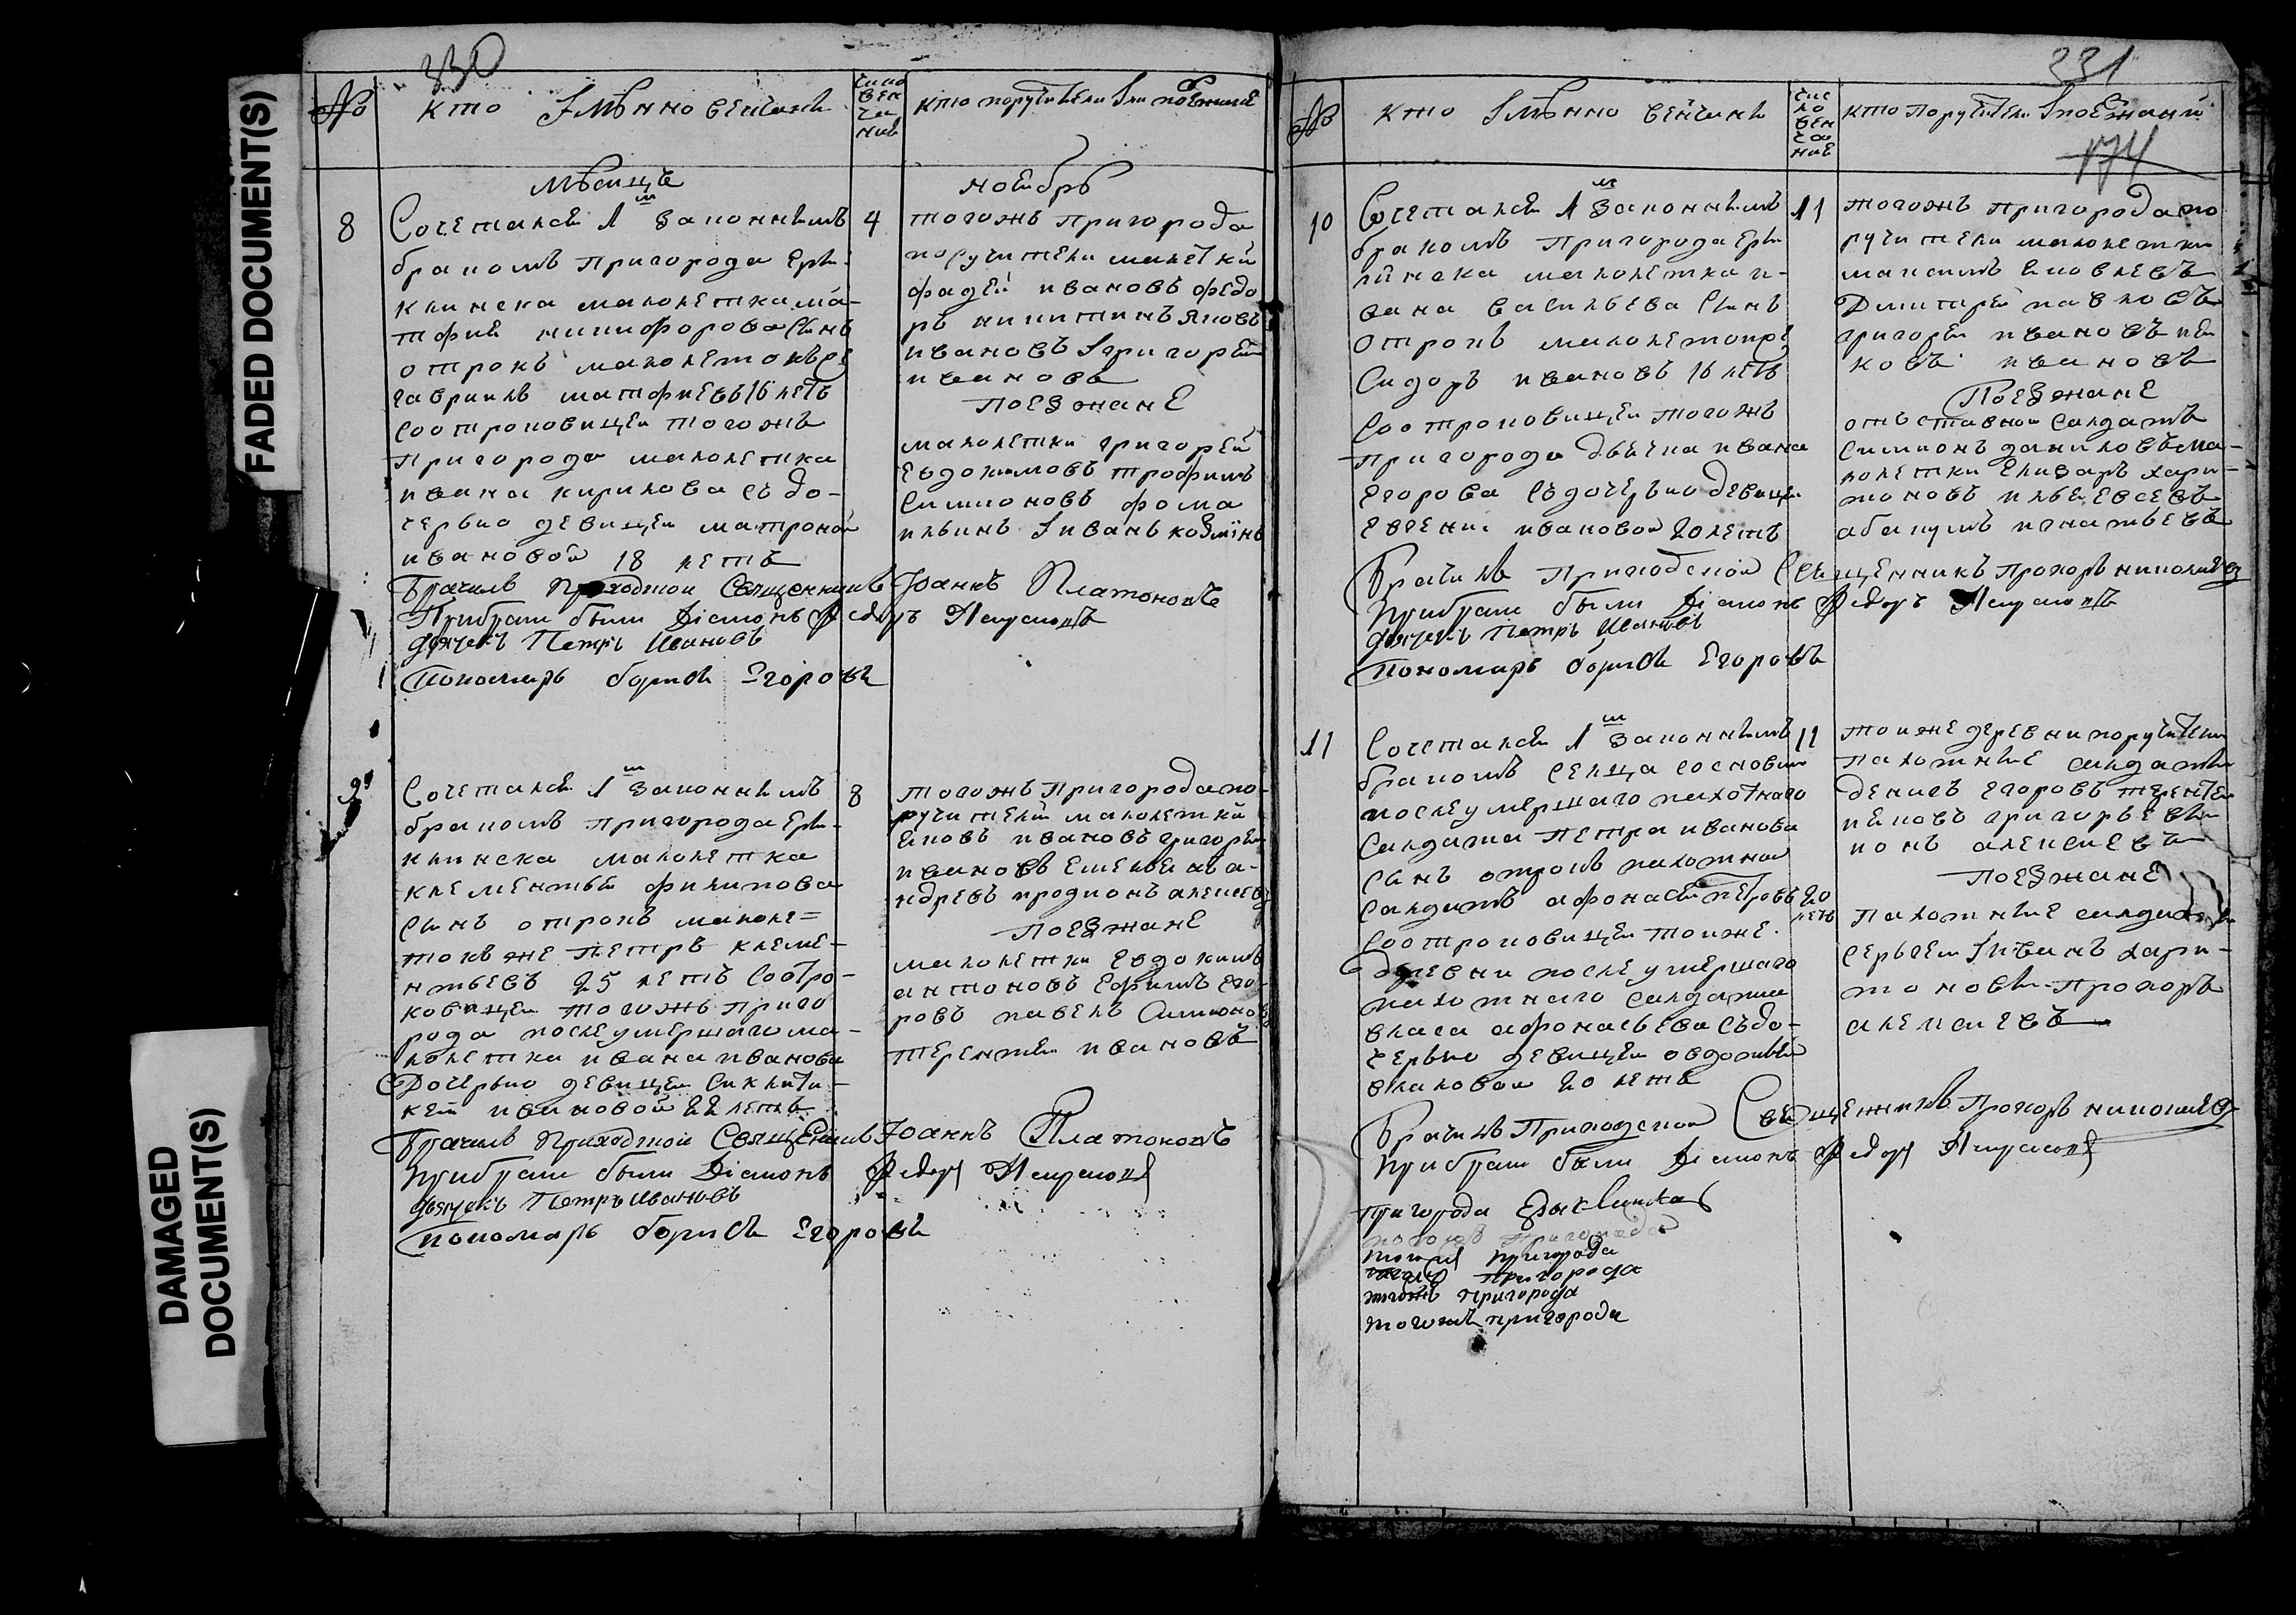 FADED DOCUMENT(S)
DAMAGED
DOCUMENT(S)
330
№
кто Імѣнно венчаны
число
вен
ча
ния
кто поручители Іли поезжане
мѣсяцъ
ноябрь
8
Сочетался 1м законнымъ
бракомъ пригорода Еры-
клинска малолетка ма-
тфия никифорова сынъ
отрокъ малолетокъ же
гаврилъ матфиевъ 16 летъ
соотроковицей тогожъ
пригорода малолетка
ивана кирилова съ до-
черью девицей матроной
ивановой 18 летъ
4
тогожъ пригорода
поручители малетки
фадей ивановъ федо
ръ никитинъ яковъ
ивановъ Григорей
ивановъ
поезжане
малолетки григорей
евдокимовъ трофимъ
симионовъ фома
ильинъ Іванъ козминъ
Брачилъ Приходской Священникъ Іоаннъ Платоновъ
Прибраке были Діаконъ Федоръ Некрасовъ
дьячекъ Петръ Ивановъ
Пономарь борисъ Егоровъ
9
Сочетался 1м законнымъ
бракомъ пригорода Еры-
клинска малолетка
клементья филипова
сынъ отрокъ малоле=
токъ же петръ клеме-
нтьевъ 25 летъ соотро-
ковицей тогожъ приго
рода послеумершаго ма-
лолетка ивана иванова
Дочерью девицей
ивановой 22 летъ
8
тогожъ пригорода по-
ручители малолетки
яковъ ивановъ григорей
ивановъ Емельян а-
ндреевъ продионъ алексеевъ
поезжане
малолетки евдокимъ
антоновъ Ефимъ его-
ровъ павелъ Симионовъ
терентей ивановъ
Брачилъ Приходской Священникъ Іоаннъ Платоновъ
Прибраке были Діаконъ Федоръ Некрасовъ
дьячекъ Петръ Ивановъ
Пономарь борисъ Егоровъ
331
№
кто Імѣнно венчаны
чис
ло
вен
ча
ние
кто поручители Іпоезжаны
174
10
Сочетался 1м законнымъ
бракомъ пригорода Еры
линска малолетка и-
вана васильева сынъ
отрокъ малолетокже
Сидоръ ивановъ 16 летъ
Соотроковицей тогожъ
пригорода дьячка ивана
егорова съдочерью девицей
евгении ивановой 20 летъ
11
тогожъ пригорода по
ручители малолетки
максимъ яковлевъ
Дмитрей павловъ
григорей ивановъ
ивановъ
Поезжане
отъставной салдатъ
симионъ даниловъ ма-
лолетки Елизаръ хари-
тоновъ илья евсеевъ
абакумъ игнатьевъ
Брачилъ Приходской Священникъ Прохоръ николаевъ
Прибраке были Діаконъ Федоръ Некрасовъ
дьячекъ Петръ Ивановъ
Пономарь борисъ Егоровъ
11
Сочетался 1м законнымъ
бракомъ сельца сосновки
послеумершаго пахотнаго
салдата петра иванова
сынъ отрокъ пахотной
салдатъ афонасей петровъ 20
летъ
соотроковицей тоиже
деревни после умершаго
пахотнаго салдата
власа афонасьева съдо-
черью девицей овдотьей
власовой 20 летъ
11
тоиже деревни поручители
пахотные салдаты
денисъ егоровъ терентей
григорьевъ
алексиевъ
поезжане
пахотные салдаты
сергеей Іиванъ хари-
тоновы прохоръ
алексиевъ
Брачилъ Приходской Священникъ Прохоръ николаевъ
Прибраке были Діаконъ Федоръ Некрасовъ
пригорода Ерыклинска
тогожъ пригорода
тогожъ пригорода
тогожъ пригорода
тогожъ пригорода
тогожъ пригорода